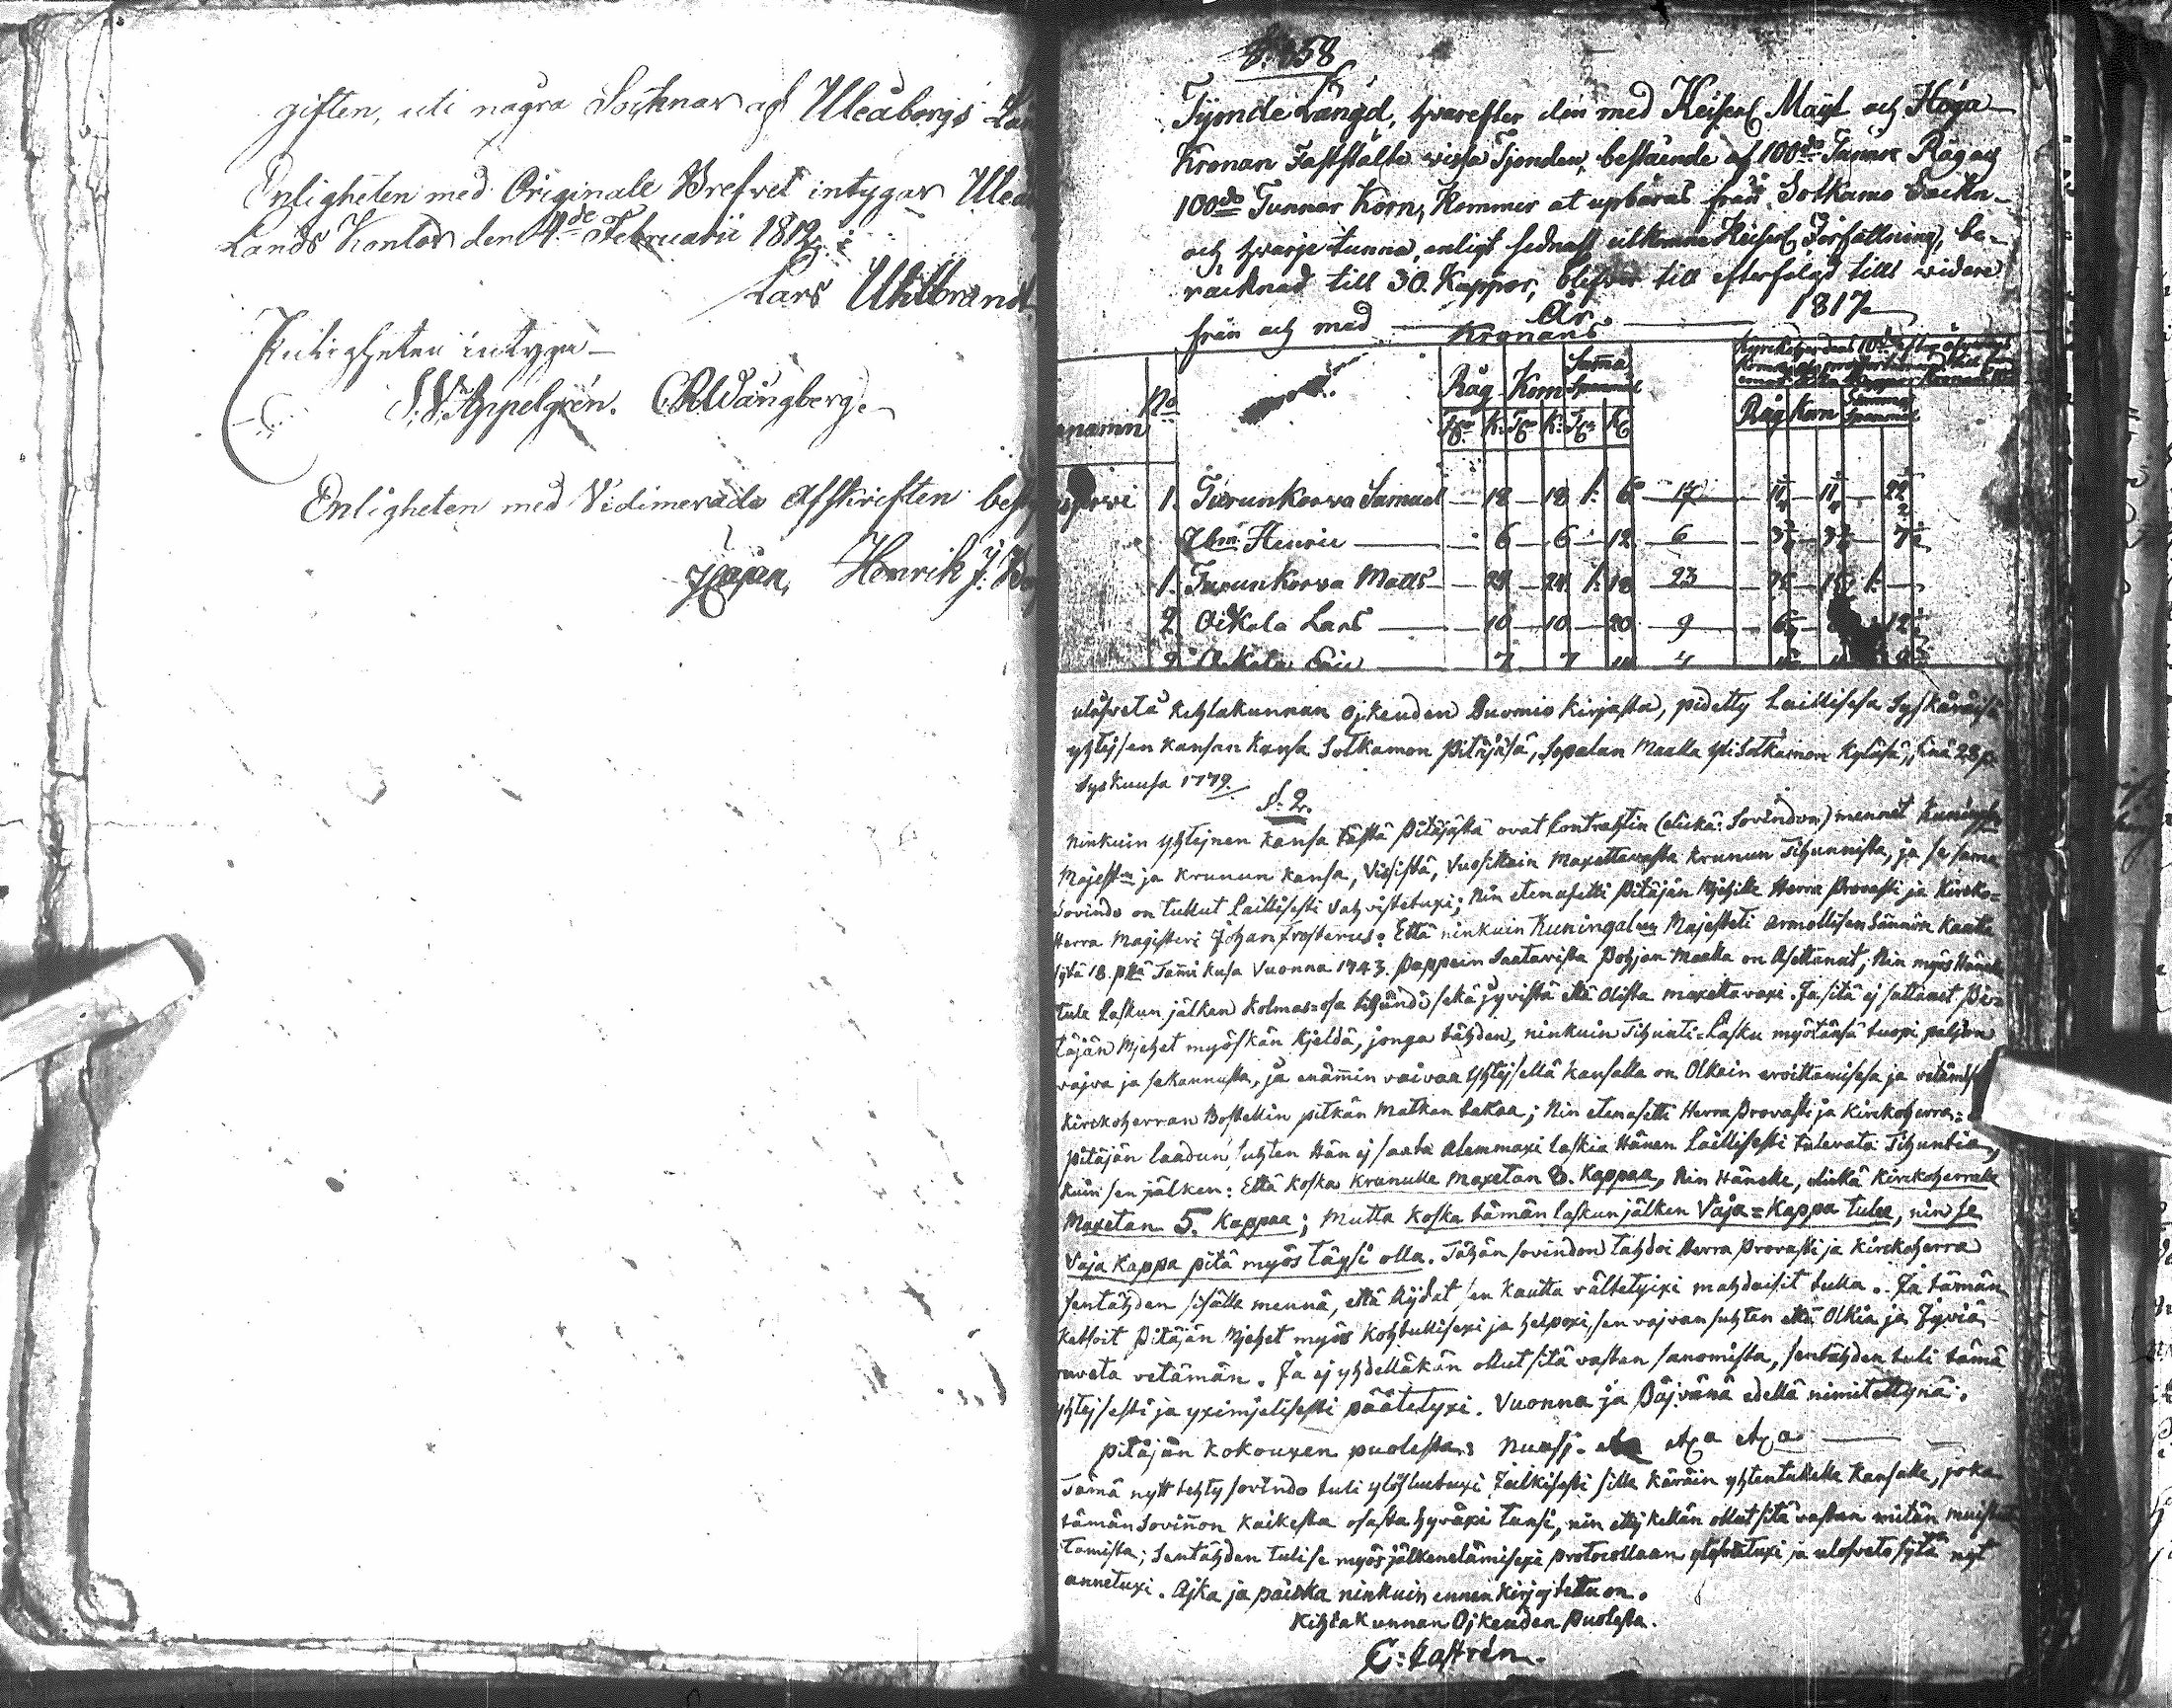 giften, uti några Socknar af Uleåborgs
Enligheten med Originale Brefvet intygar
Lands Kontor den 4de Februarii 1812.
Lars
intyga
Appelgrén. CR Wångberg.
Enligheten med Vidimerade Afskriften
Henrik J.
Tijonde Längd, hvarefter den med Keiserl Mayt och Höga
Kronan Fastställte vissa Tjonden, bestående af 100de Tunnor Råg och
100de Tunnor Korn, Kommer at upbäras från Sotkamo Sockn
och hvarje tunna, enligt sednast utkomne Keiserl Författning, be-
räcknad till 30. Kappor, blifver till efterfölgd tills vidare
från och med År 1817.
Kronans
No Råg Korn Summa Spanmål Råg Korn Summa Spanmål
1. Turunkorva Samuel 18 18 1: 6 17 11 11 22
Ibm Henric 6 6 12 6 3 3 7
1. Turunkorva Matts 24 24 1: 18 23 15 15 1:
2. Oikola Lars 10 10 20 9 6 12
2. Oikola Eric 7 7 4
ulosvetä kihlakunnan ojkeuden Duomio kirjasta, pidetty Laillisesa Syskäräisä
yhtejsen kansan kansa Sotkamon pitäjäsä, Sopalan Maalla yli Sotkamon kyläsä, sinä 28 p.
Syskuusa 1779.
§. 2.
Ninkuin yhtejnen kansa tästä pitäjästä ovat Contrahtin (elickä: Sovindon) mennet
Majestin ja krunun kansa, vissistä, vuosittain maxettavasta krunun Tihunnista, ja se sama
sovindo on tullut laillisesti vahvistetuxi; Nin etenasetti pitäjän Mjehille Herra Provasti ja kircko-
Herra Magisteri Johan Frosterus: Että ninkuin Kuningalisen Majesteti armollisen Sännön kautta
sytä 18. p:nä Tammikusa Vuonna 1743. pappein Saatavista Pohjan Maalla on Asettanut; Nin myös Hänelle
tule laskun jälken kolmas-osa tihundi sekä jyvistä että olista maxettavaxi. Ja sitä ej sattanet Pi-
täjän Mjehet myöskän kjeldä, jonga tähden, ninkuin Tihunti-Lasku myötänsä tuopi paljon
vajva ja sekannusta, ja enämmin vaivaa yhtejsellä kansalla on Olkain eroittamisesa ja vetämis
kirckoherran Bostellin pitkän matkan takaa; Nin etenasetti Herra Provasti ja kirckoherra:
pitäjän laadun suhten Hän ej saata alemmaxi laskia Hänen laillisesti tulevata Tihuntia,
kuin sen jälken: Että koska krunulle maxetan 8. kappaa, Nin Hänelle, elickä kirckoherralle
Maxetan 5. kappaa; Mutta koska tämän laskun jälken Vaja-kappa tulee, nin se
Vaja kappa pitä myös täysi olla. Tähän sovindon tahdoi Herra Provasti ja kirckoherra
sentähden sisälle mennä, että Rijdat sen kautta vältetyixi mahdaisit tulla. Ja tämän
katsoit Pitäjän Mjehet myös kohtullisexi ja helpoxi, sen vajvan suhten että Olkia ja Jyviä
vetämän. Ja ej yhdelläkän ollut sitä vastan sanomista, sentähden tuli tämä
yhtejsesti ja yximjelisesti päätetyxi. Vuonna ja Päjvänä edellä nimitettynä.
pitäjän kokouxen puolesta:
Tämä nytt tehty sovindo tuli ylösluetuxi Julkisesti sille käräin yhtentulelle kansalle, joka
tämän Sovinnon kaikesta osasta hyväxi tunsi, nin ettej kellän ollut sitä vastan mitän
tamista; Sentähden tuli se myös jälkenelämisexi protocollaan ylösotetuxi ja ulosveto sytä nyt
annetuxi. Ajka ja paicka ninkuin ennen kirjojtettu on.
Kihlakunnan Ojkeuden puolesta.
C: Castrén.